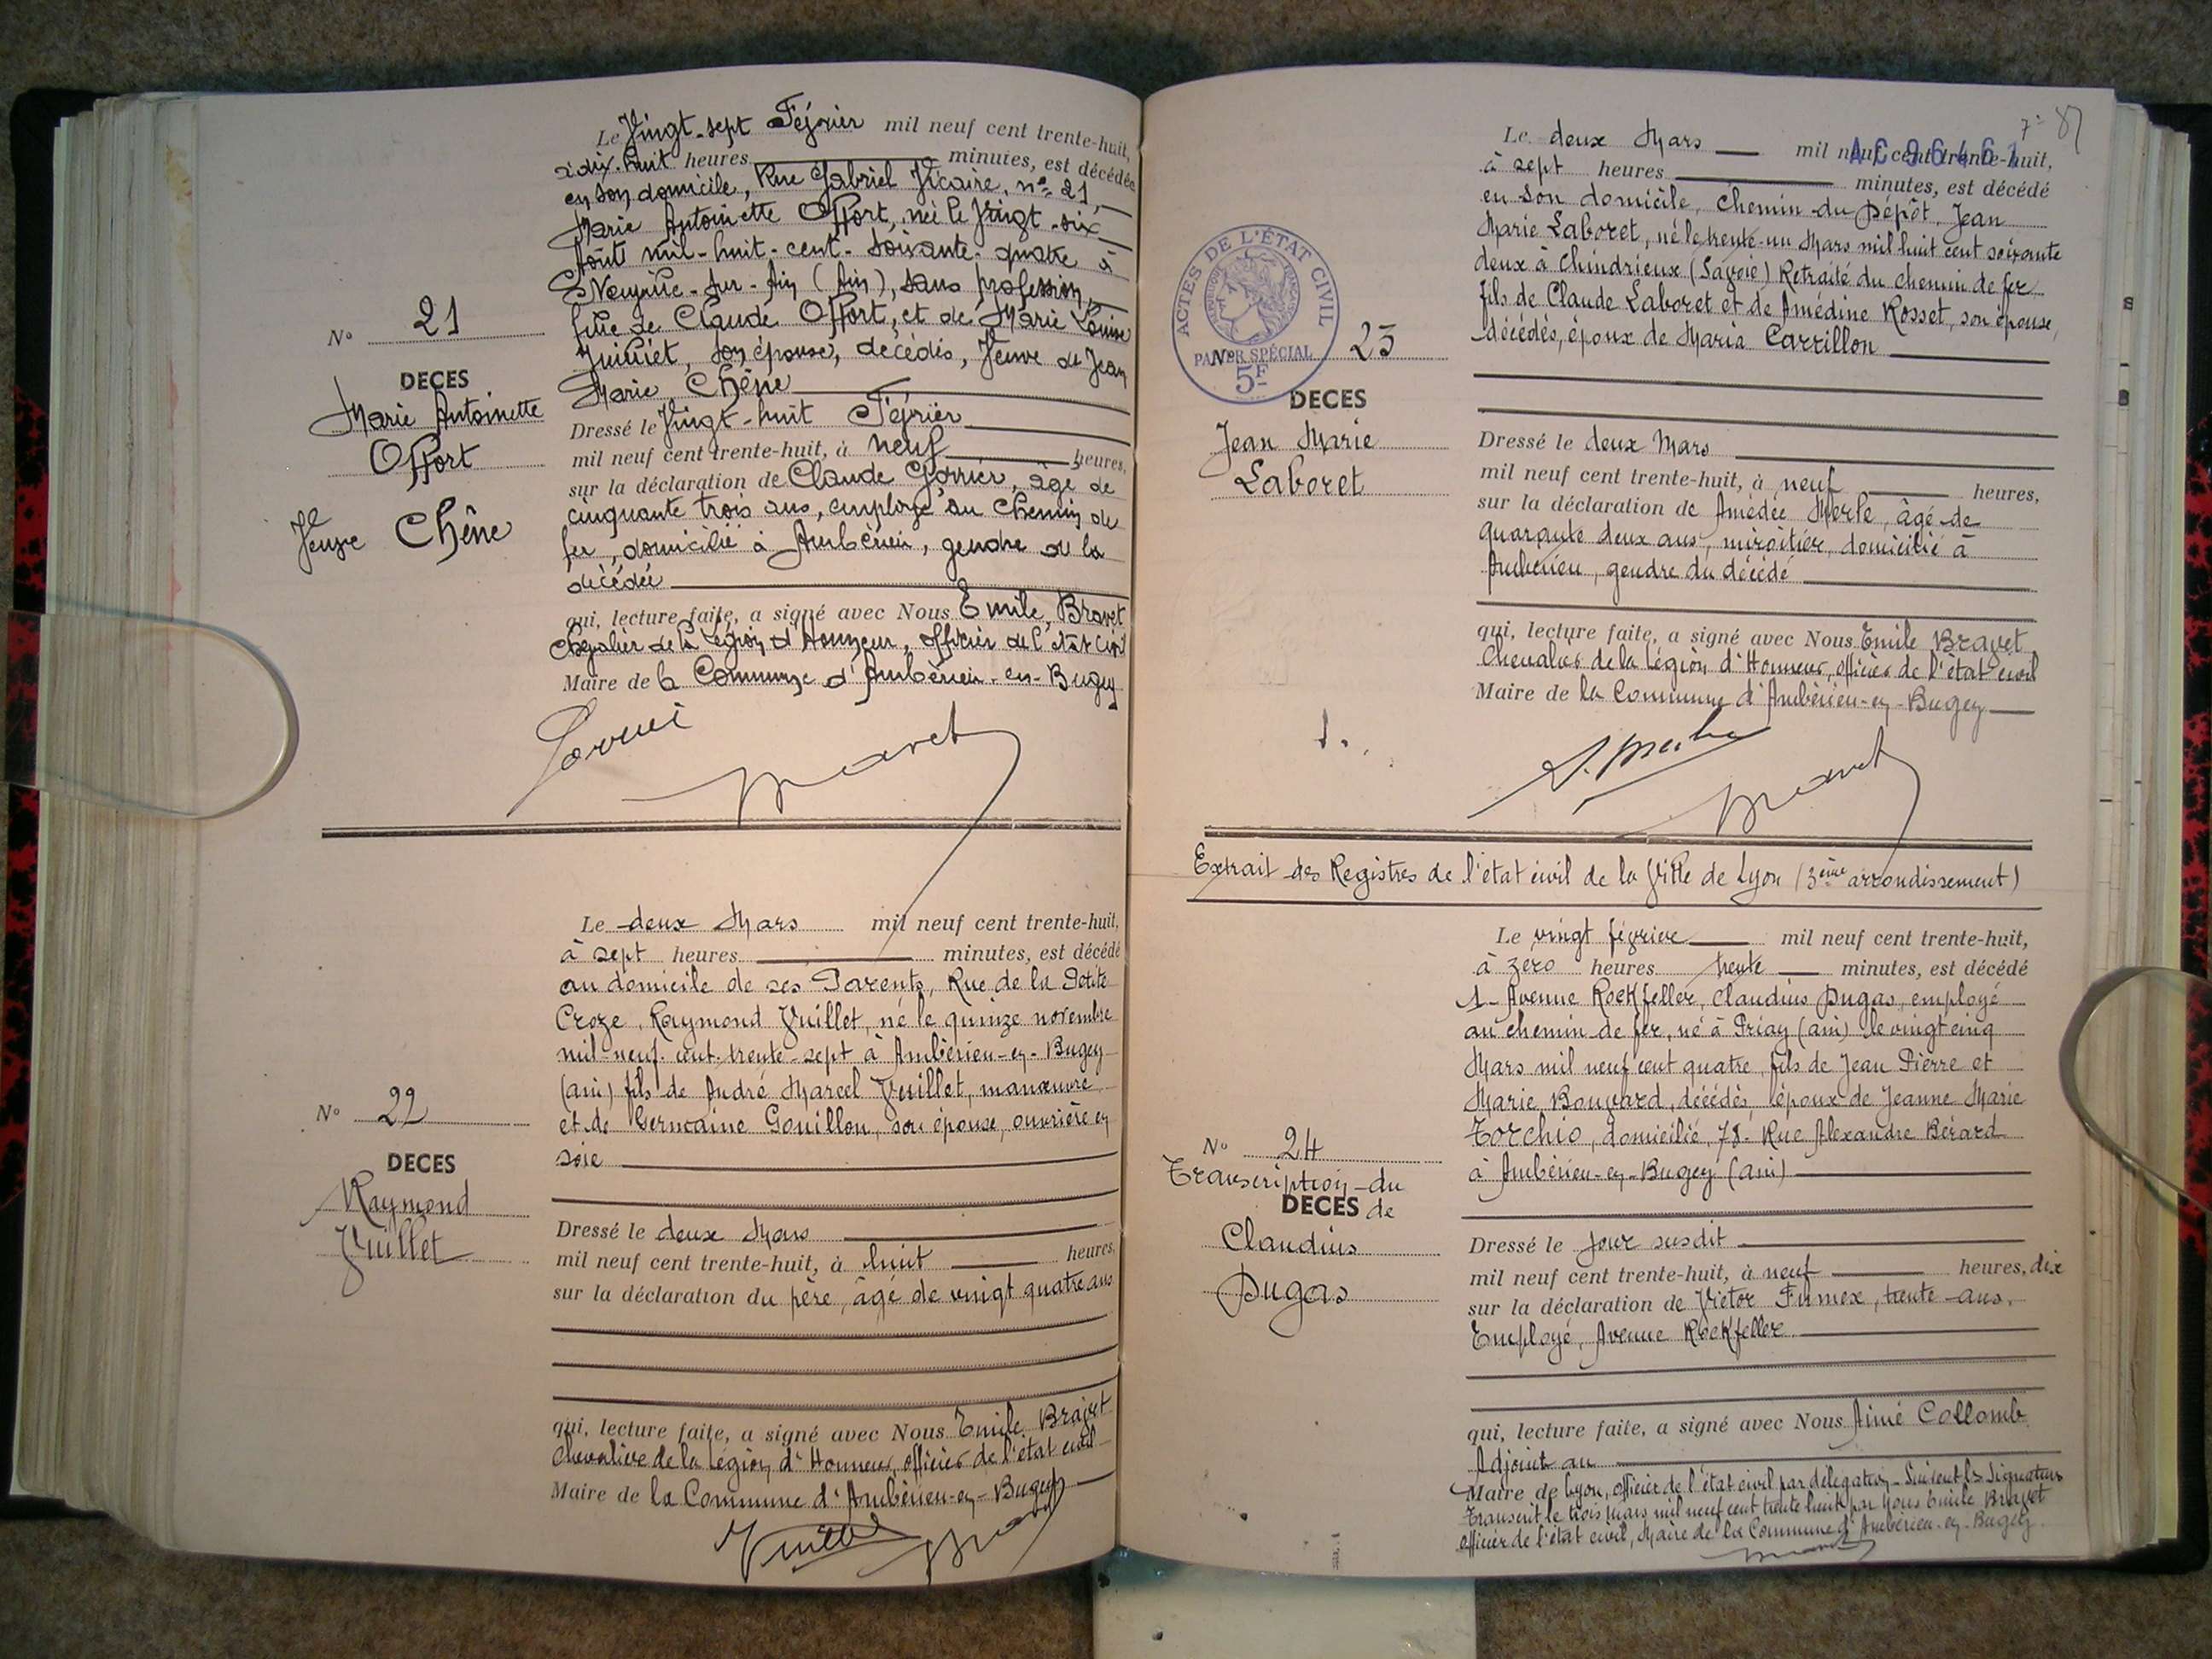 Le Vingt-sept Février mil neuf cent trente-huit,
à dix-huit heures minutes, est décédée
en son domicile, Rue Gabriel Vicaire, n° 21,
Marie Antoinette Offort, née le Vingt-six
Août mil-huit-cent-soixante-quatre à
Neuville-sur-Ain (Ain), sans profession,
fille de Claude Offort, et de Marie Louise
son épouse, décédés, Veuve de Jean
Marie Chêne
N° 21
DECES
Marie Antoinette
Offort
Veuve Chêne
Dressé le Vingt-huit Février
mil neuf cent trente-huit, à neuf heures,
sur la déclaration de Claude âgé de
cinquante trois ans, employé au Chemin de
fer, domicilié à Ambérieu, gendre de la
décédée
qui, lecture faite, a signé avec Nous Emile Bravet
Chevalier de la Légion d'Honneur, officier de l'état civil
Maire de la Commune d'Ambérieu-en-Bugey
Le deux Mars mil neuf cent trente-huit,
à sept heures minutes, est décédé
au domicile de ses Parents, Rue de la Petite
Croze, Raymond Vuillet, né le quinze novembre
mil-neuf-cent-trente-sept à Ambérieu-en-Bugey
(ain) fils de André Marcel Vuillet, manœuvre
et de Germaine Gouillon, son épouse, ouvrière en
soie
N° 22
DECES
Raymond
Vuillet
Dressé le deux Mars
mil neuf cent trente-huit, à huit heures,
sur la déclaration du père, âgé de vingt quatre ans
qui, lecture faite, a signé avec Nous Emile Bravet
Chevalier de la Légion d'Honneur, officier de l'état civil
Maire de la Commune d'Ambérieu-en-Bugey
Vuillet Bravet
7- 87
AC 96461
Le deux Mars mil neuf cent trente-huit,
à sept heures minutes, est décédé
en son domicile, Chemin du Dépôt, Jean
Marie Laboret, né le trente-un Mars mil huit cent soixante
deux à Chindrieux (Savoie) Retraité du chemin de fer
fils de Claude Laboret et de Amédine Rosset, son épouse,
décédés, époux de Maria Carrillon
ACTES DE L'ÉTAT CIVIL
PAPIER SPÉCIAL
5F
N° 23
DECES
Jean Marie
Laboret
Dressé le deux Mars
mil neuf cent trente-huit, à neuf heures,
sur la déclaration de Amédée Merle, âgé de
quarante deux ans, miroitier, domicilié à
Ambérieu, gendre du décédé
qui, lecture faite, a signé avec Nous Emile Bravet
Chevalier de la Légion d'Honneur, officier de l'état civil
Maire de la Commune d'Ambérieu-en-Bugey
Extrait des Registres de l'état civil de la Ville de Lyon (3ème arrondissement)
Le vingt février mil neuf cent trente-huit,
à zéro heures trente minutes, est décédé
1- Avenue Rockfeller, Claudius Dugas, employé
au chemin de fer, né à Priay (ain) le vingt cinq
Mars mil neuf cent quatre, fils de Jean Pierre et
Marie Bouvard, décédés, époux de Jeanne Marie
Torchio, domicilié, 78- Rue Alexandre Bérard
à Ambérieu-en-Bugey (ain)
N° 24
Transcription du
DECES de
Claudius
Dugas
Dressé le jour susdit
mil neuf cent trente-huit, à neuf heures, dix
sur la déclaration de Victor Fumex, trente ans,
Employé, Avenue Rockfeller
qui, lecture faite, a signé avec Nous Aimé Collomb
Adjoint au
Maire de Lyon, officier de l'état civil par délégation - Suivent les Signatures
Transcrit le trois Mars mil neuf cent trente huit par Nous Emile Bravet
officier de l'état civil, Maire de la Commune d'Ambérieu-en-Bugey.